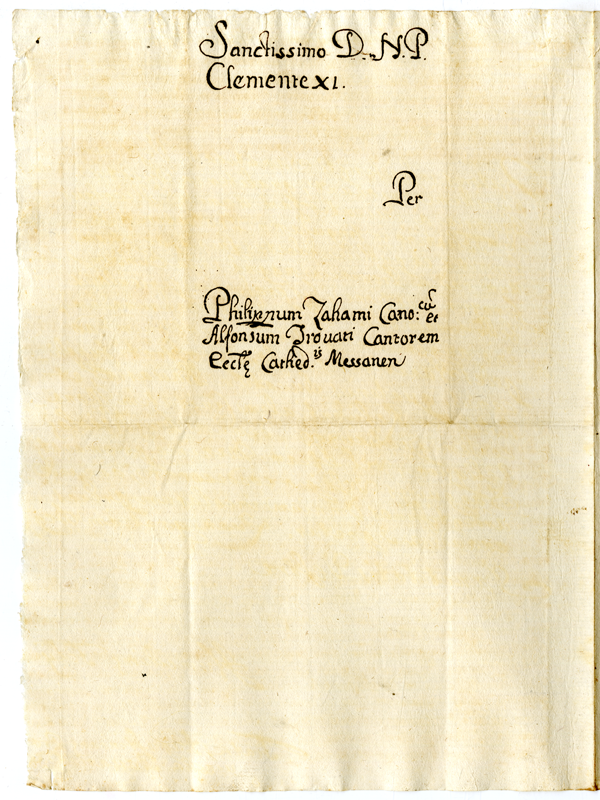 Sanctissimo D. N. P.
Clemente XI.
Per
Philippum Zahami Cano:cũ et
Alfonsum Trovati Cantorem
Ecclę Cathed.is Messanen